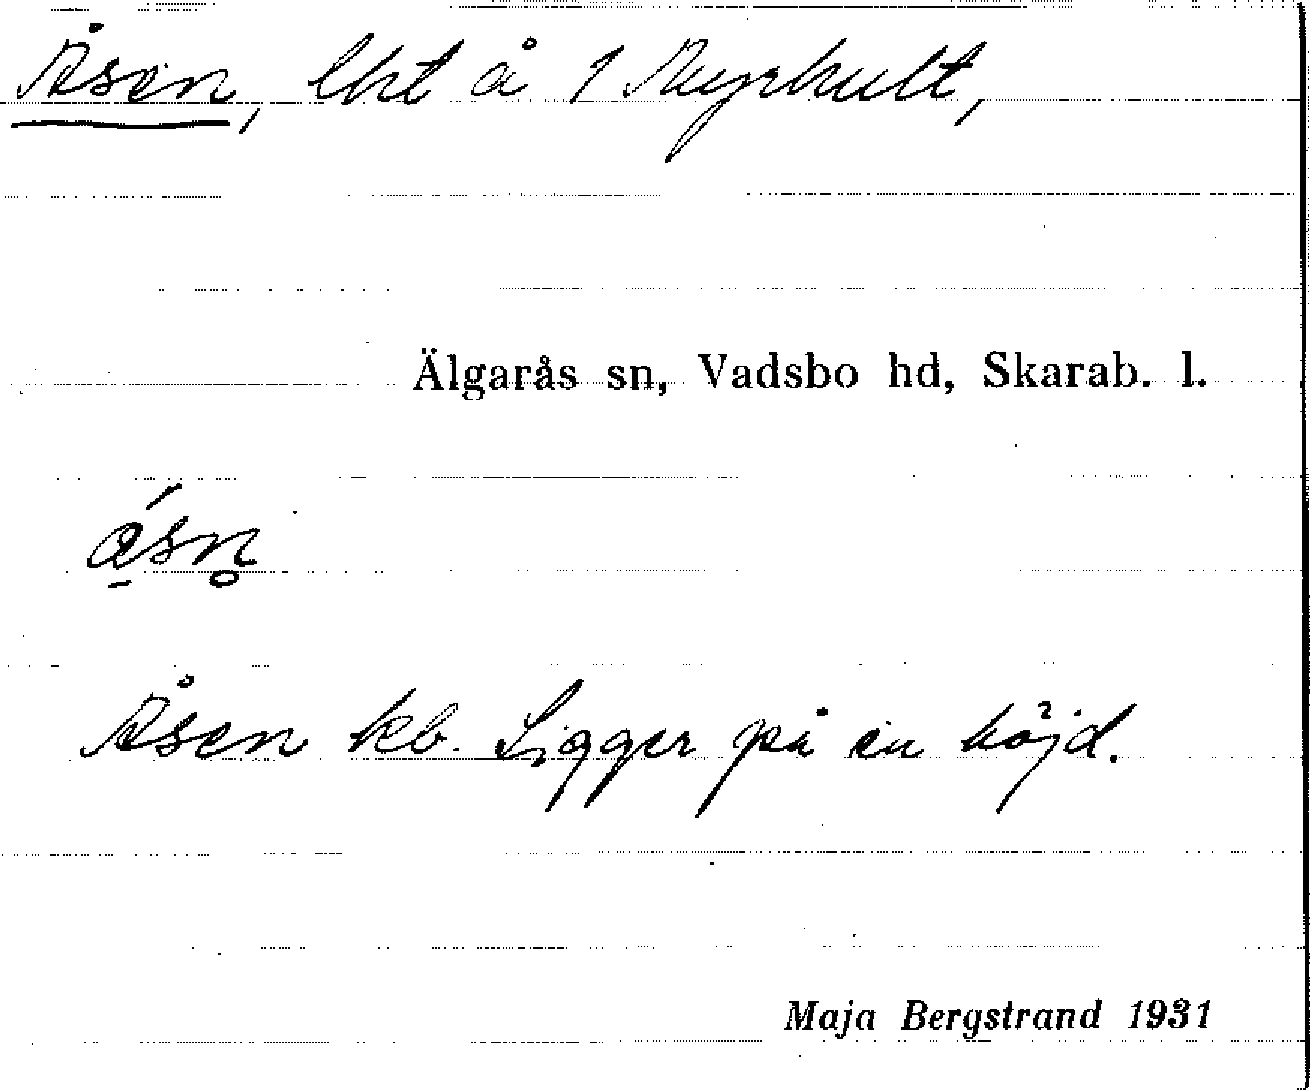 Åsen, lht å 1 Myrhult,
Älgarås sn, Vadsbo hd, Skarab. l.
Åsen kb. Ligger på en höjd.
Maja Bergstrand 1931